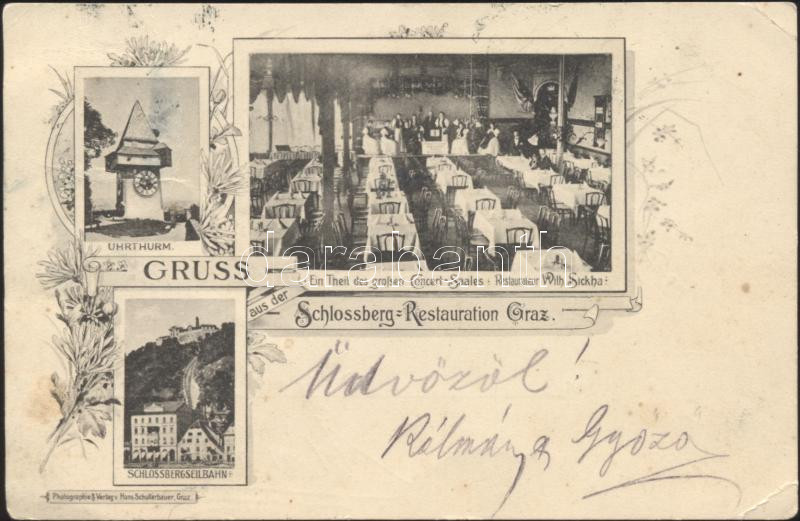 UHRTHURM.
GRUSS
aus der
Ein Theil des großen Concert-Saales · Restaurateur Wilh. Sickha
Schlossberg-Restauration Graz.
darabanth
Üdvözöl!
Kálmán Gyozo
SCHLOSSBERGSEILBAHN
Photographie & Verlag v. Hans Schullerbauer, Graz